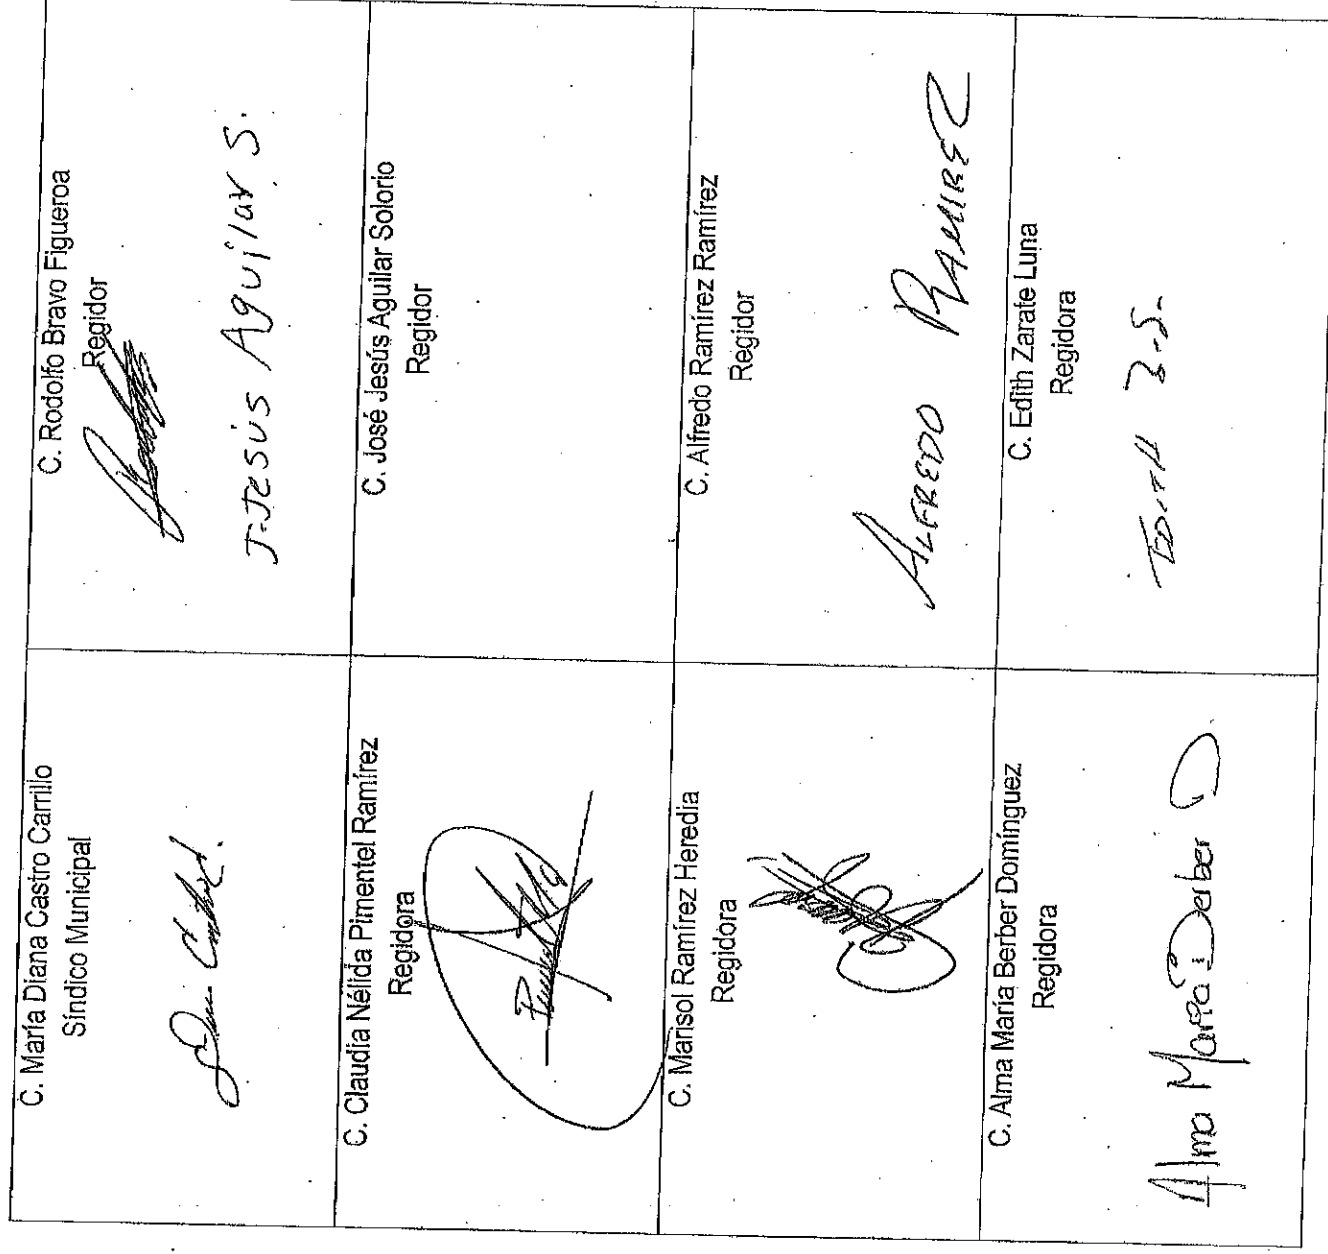 C. María Diana Castro Carrillo
Síndico Municipal
C. Rodolfo Bravo Figueroa
Regidor
J. Jesús Aguilar S.
C. Claudia Nélida Pimentel Ramírez
Regidora
C. José Jesús Aguilar Solorio
Regidor
C. Marisol Ramírez Heredia
Regidora
C. Alfredo Ramírez Ramírez
Regidor
ALFREDO RAMIREZ
C. Alma María Berber Domínguez
Regidora
Alma María Berber D.
C. Edith Zarate Luna
Regidora